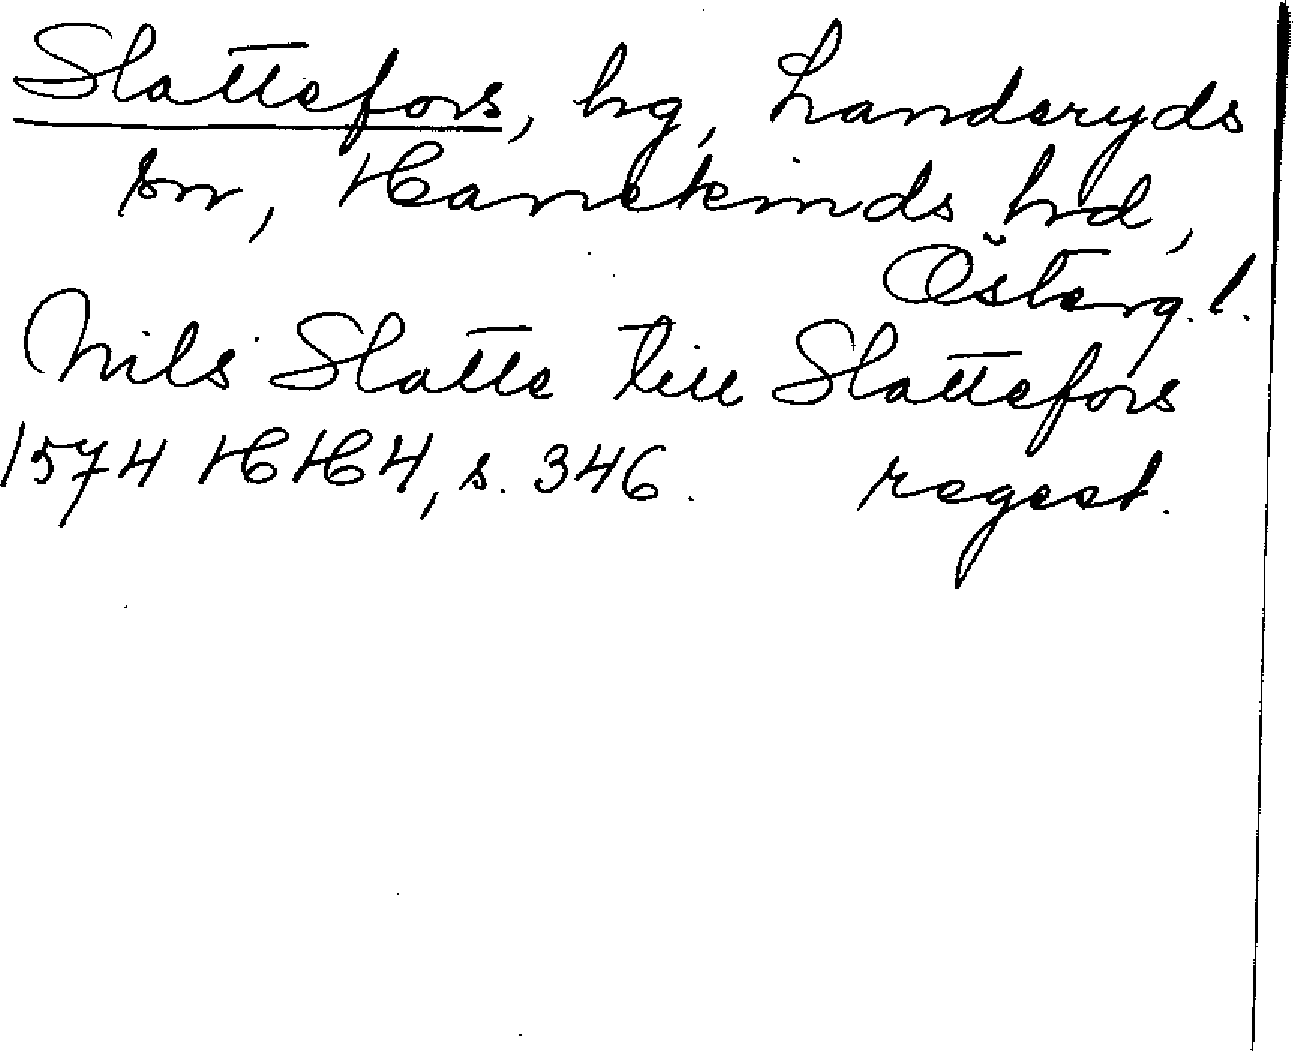 Slattefors, hg, Landeryds
sn, Hanekinds hd,
Österg.l.
Nils Slatte till Slattefors
1574 HH4, s. 346. regest.